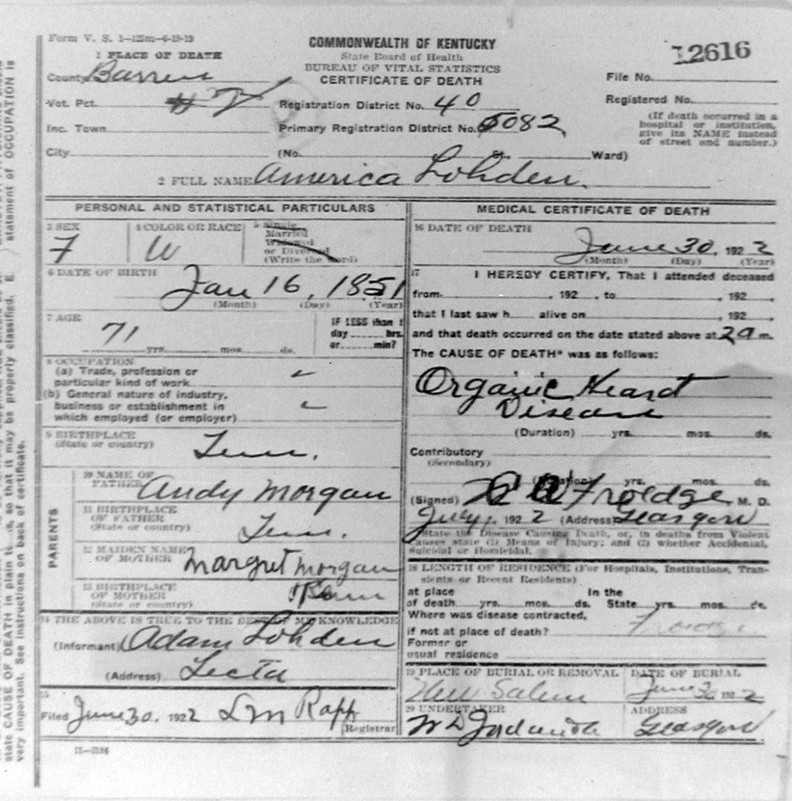 Form V. S. 1-125m-6-19-19
COMMONWEALTH OF KENTUCKY
State Board of Health
BUREAU OF VITAL STATISTICS
CERTIFICATE OF DEATH
12616
1 PLACE OF DEATH
County Barren
File No.
Vot. Pct. # 7
Registration District No. 40
Registered No.
Inc. Town
Primary Registration District No. 5082
(If death occurred in a hospital or institution, give its NAME instead of street and number.)
City
(No. St. Ward)
2 FULL NAME America Lohden.
PERSONAL AND STATISTICAL PARTICULARS
3 SEX
F
4 COLOR OR RACE
W
5 Single
Married
Widowed
or Divorced
(Write the word)
6 DATE OF BIRTH
Jan 16, 1851
(Month) (Day) (Year)
7 AGE
71
yrs. mos. ds.
IF LESS than 1
day hrs.
or min?
8 OCCUPATION
(a) Trade, profession or
particular kind of work
(b) General nature of industry,
business or establishment in
which employed (or employer)
9 BIRTHPLACE
(State or country) Tenn.
PARENTS
10 NAME OF
FATHER Andy Morgan
11 BIRTHPLACE
OF FATHER
(State or country) Tenn.
12 MAIDEN NAME
OF MOTHER Margret Morgan
13 BIRTHPLACE
OF MOTHER
(State or country) Tenn
14 THE ABOVE IS TRUE TO THE BEST OF MY KNOWLEDGE
(Informant) Adam Lohden
(Address) Lecta
15
Filed June 30, 1922 Rapp
Registrar
11-3184
MEDICAL CERTIFICATE OF DEATH
16 DATE OF DEATH
June 30, 1922
(Month) (Day) (Year)
17 I HEREBY CERTIFY, That I attended deceased
from , 192 , to , 192
that I last saw h alive on , 192
and that death occurred on the date stated above at 2 a m.
The CAUSE OF DEATH* was as follows:
Organic Heart
Disease
(Duration) yrs. mos. ds.
Contributory
(Secondary)
(Duration) yrs. mos. ds.
(Signed) Froedge M. D.
July 1, 1922 (Address) Glasgow
State the Disease Causing Death, or, in deaths from Violent
Causes state (1) Means of Injury; and (2) whether Accidental,
Suicidal or Homicidal.
18 LENGTH OF RESIDENCE (For Hospitals, Institutions, Tran-
sients or Recent Residents)
at place In the
of death yrs. mos. ds. State yrs. mos. ds.
Where was disease contracted,
if not at place of death?
Former or
usual residence
19 PLACE OF BURIAL OR REMOVAL
New Salem
DATE OF BURIAL
June 30 1922
20 UNDERTAKER
ADDRESS
Glasgow
state CAUSE OF DEATH in plain terms, so that it may be properly classified. E
statement of OCCUPATION is
very important. See instructions on back of certificate.